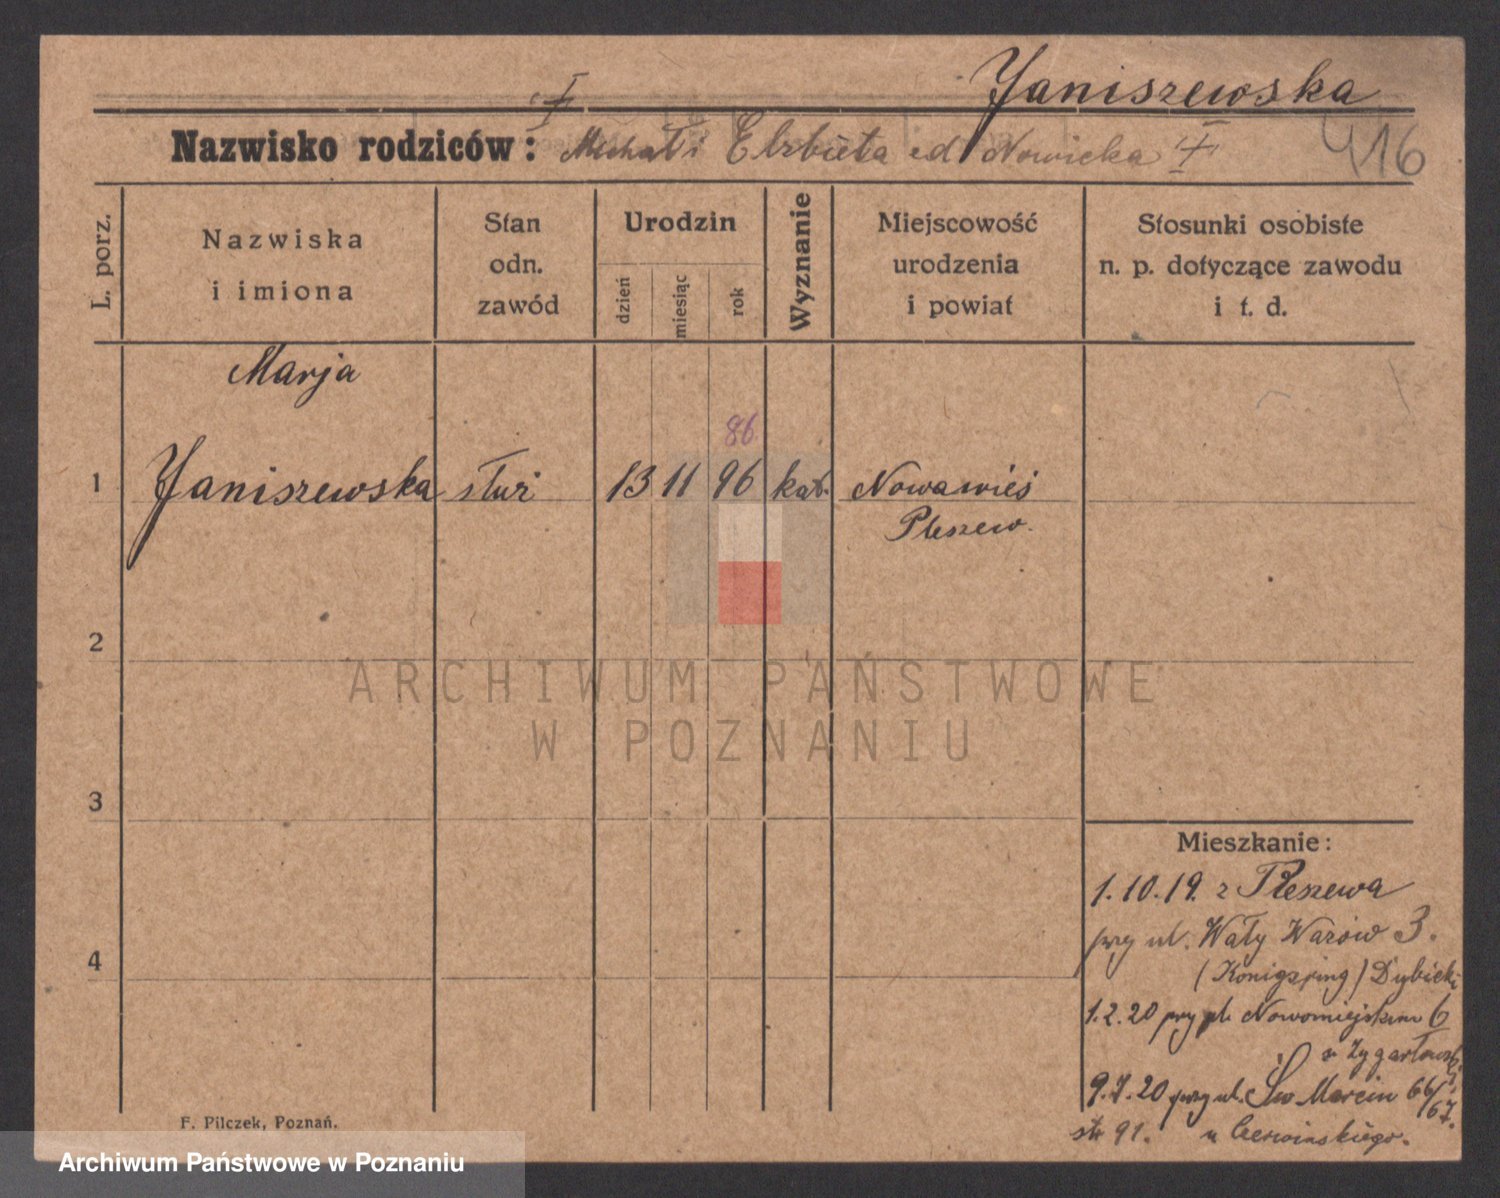 Janiszewska
Nazwisko rodziców: Michał i Elżbieta Nowicka
416
L. porz.
Nazwiska
i imiona
Stan
odn.
zawód
Urodzin
dzień
miesiąc
rok
Wyznanie
Miejscowość
urodzenia
i powiat
Stosunki osobiste
n. p. dotyczące zawodu
i t. d.
Marja
86
1 Janiszewska służ 13 11 96 kat. Nowawieś
Pleszew.
2
3
4
ARCHIWUM PAŃSTWOWE
W POZNANIU
Mieszkanie:
1.10.19. z Pleszewa
przy ul. Wały Wazów 3.
(Konigsring) Dybicki
1.2.20 przy pl. Nowomiejskim 6
9.7.20 przy ul. Św Marcin 66/67.
str 91. u Czerwińskiego.
F. Pilczek, Poznań.
Archiwum Państwowe w Poznaniu